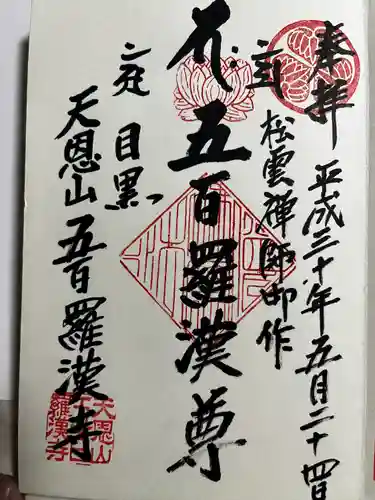 奉拝
平成三十年五月二十四日
松雲禅師御作
五百羅漢尊
目黒
天恩山五百羅漢寺
天恩山
五百
羅漢寺